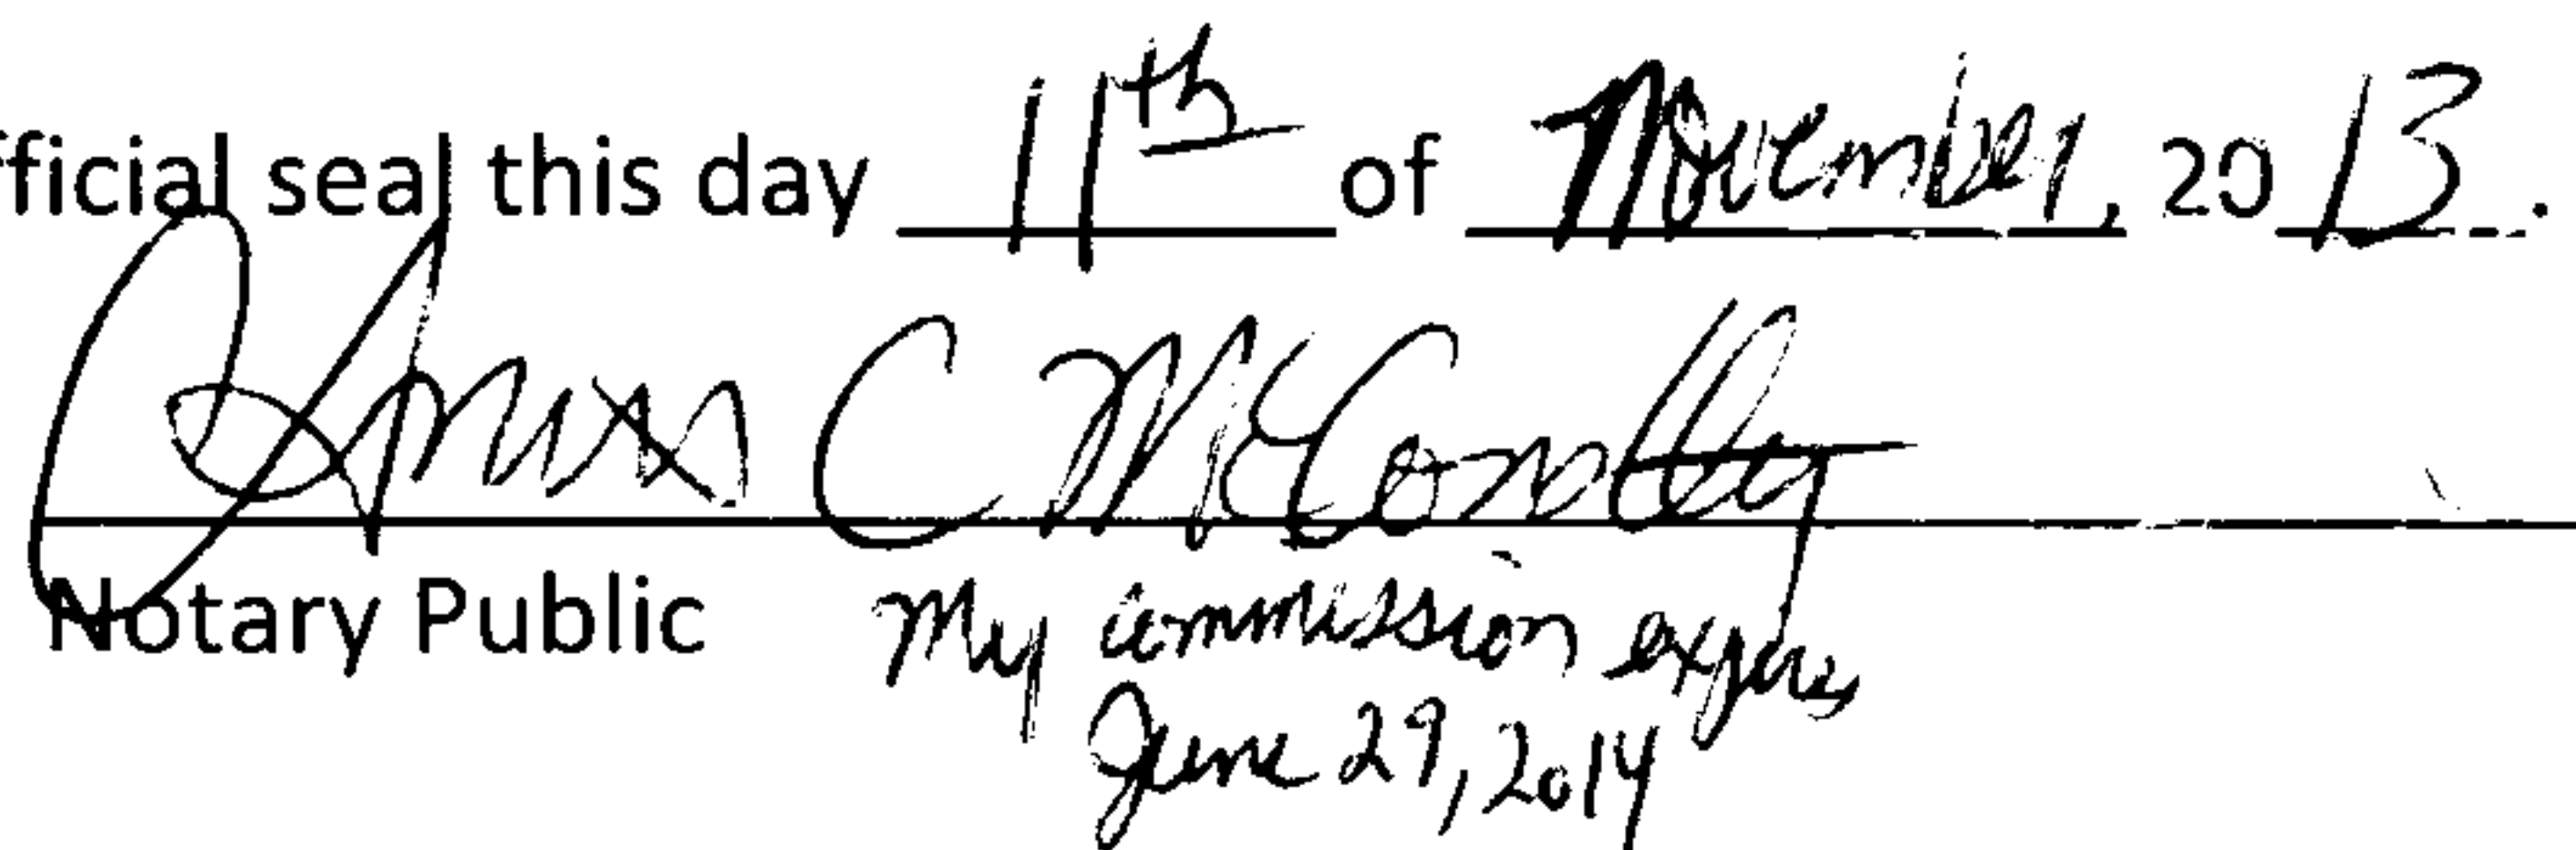 fficial seal this day 11th of November, 2013.
C McConol
Notary Public My commission expires
June 29, 2014